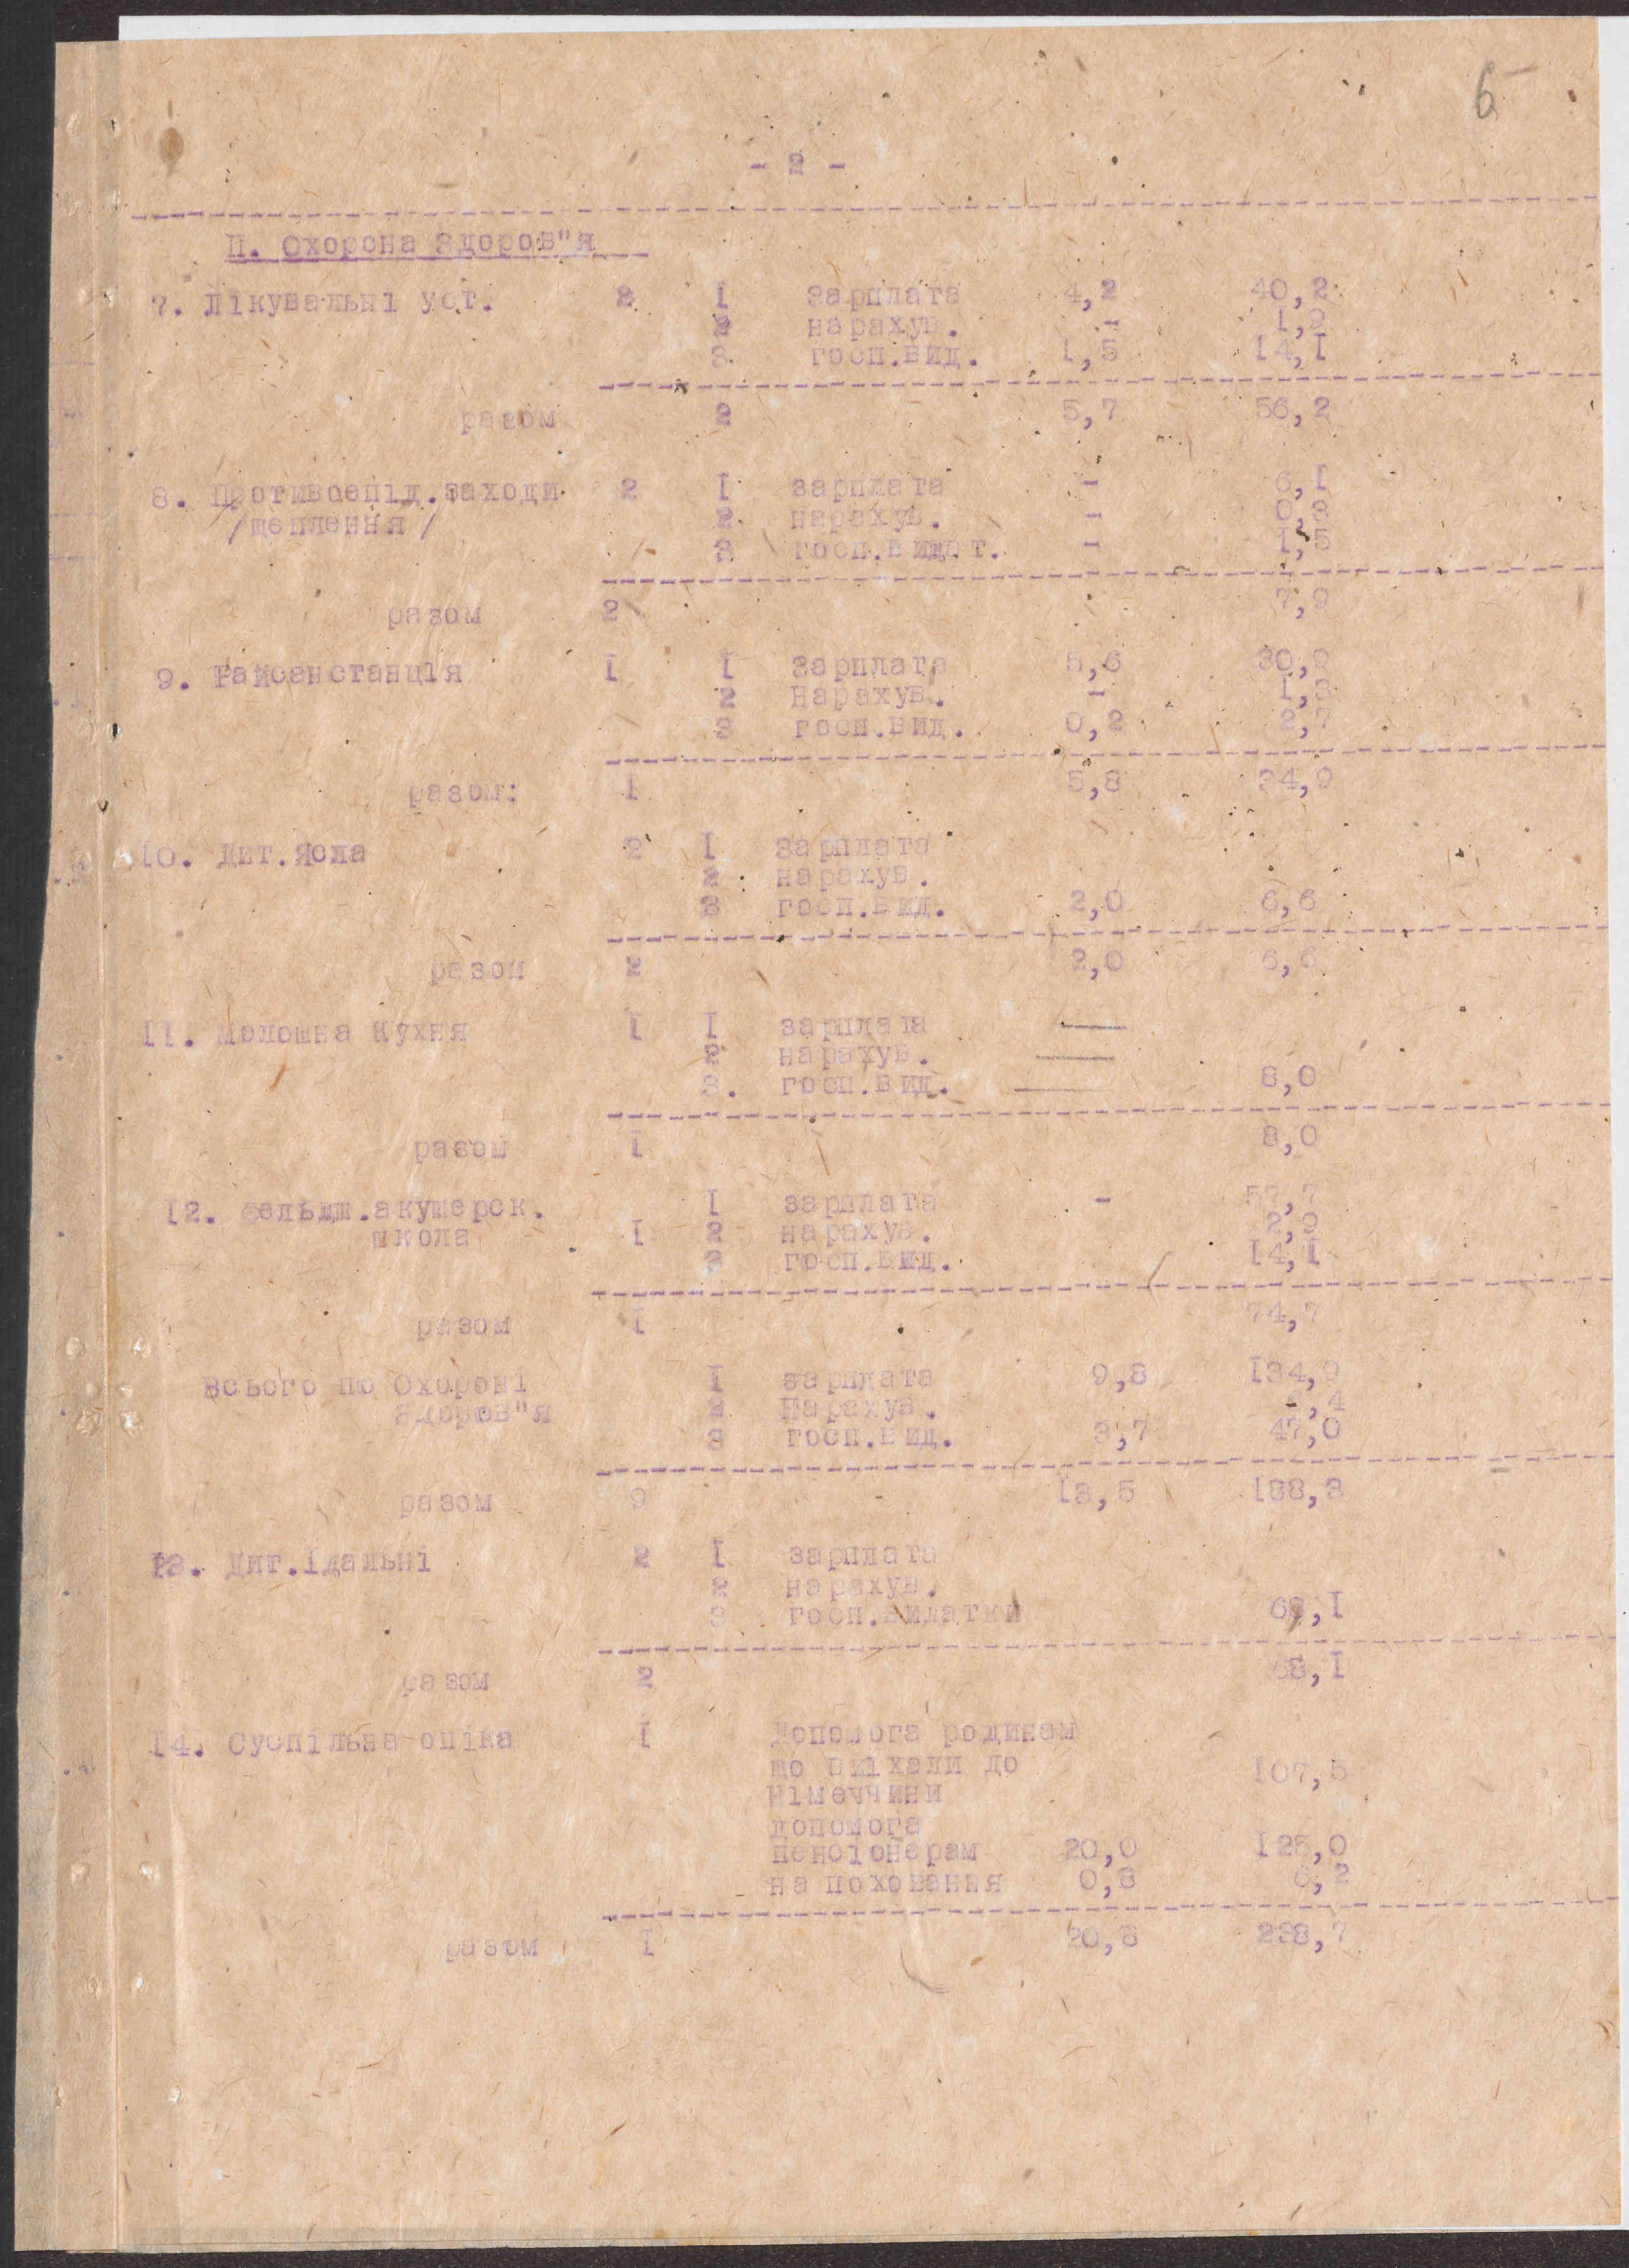 6
- 2 -
П. Охорона Здоров"я
7. Лікувальні уст. 2 I зарплата 4,2 40,2
2 нарахув. - 1,9
3 госп.вид. 1,5 14,I
разом 2 5,7 56,2
8. Противоепід.заходи 2 I зарплата - 6,I
/щеплення/ 2 нарахув. - 0,3
3 госп.видат. - 1,5
разом 2 7,9
9. Райсанстанція I I зарплата 5,6 30,9
2 Нарахув. - 1,3
3 госп.вид. 0,2 2,7
разом: I 5,8 34,9
10. Дит.Ясла 2 I зарплата
2 нарахув.
3 госп.вид. 2,0 6,6
разом 2 2,0 6,6
11. Молошна Кухня I I зарплата
2 нарахув.
3. госп.вид. 8,0
разом I 8,0
12. Фельдш.акушерск. I зарплата - 57,7
школа I 2 нарахув. 2,9
3 госп.вид. 14,I
разом I 74,7
Всього по Охороні I зарплата 9,8 134,9
Здоров"я 2 Нарахув. ,4
3 госп.вид. 3,7 47,0
разом 9 13,5 188,3
13. Дит.їдальні 2 I зарплата
2 нарахув.
3 госп.видатки 68,I
разом 2 68,I
14. Суспільна опіка I Допомога родинам
що виїхали до 107,5
Німеччини
допомога
пенсіонерам 20,0 125,0
на поховання 0,8 6,2
разом I 20,8 238,7